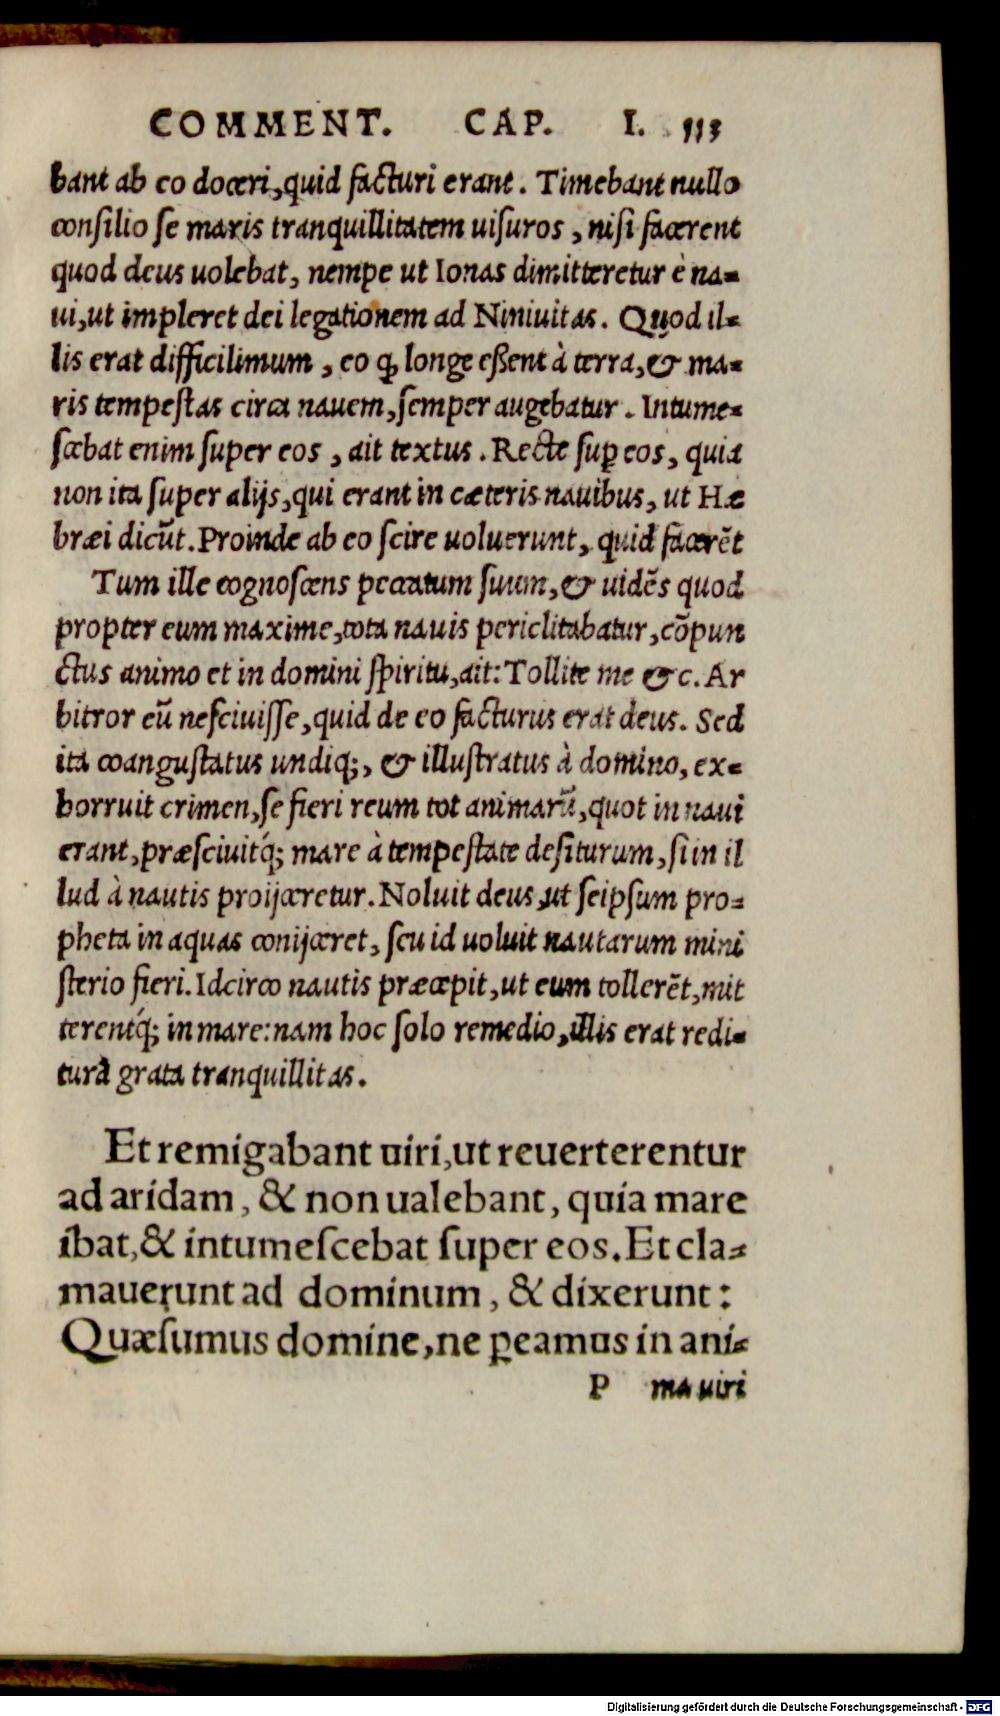 COMMENT. CAP. I. 113
bant ab eo doceri, quid facturi erant. Timebant nullo
consilio se maris tranquillitatem uisuros, nisi facerent
quod deus uolebat, nempe ut Ionas dimitteretur è na-
ui, ut impleret dei legationem ad Niniuitas. Quod il-
lis erat difficilimum, eo ꝙ longe eßent à terra, & ma-
ris tempestas circa nauem, semper augebatur. Intume-
scebat enim super eos, ait textus. Recte suꝑ eos, quia
non ita super alijs, qui erant in cæteris nauibus, ut Hæ
bræi dicũt. Proinde ab eo scire uoluerunt, quid facerẽt
Tum ille cognoscens peccatum suum, & uidẽs quod
propter eum maxime, tota nauis periclitabatur, cõpun
ctus animo et in domini spiritu, ait: Tollite me &c. Ar
bitror eũ nesciuisse, quid de eo facturus erat deus. Sed
ita coangustatus undiq;, & illustratus à domino, ex-
horruit crimen, se fieri reum tot animarũ, quot in naui
erant, præsciuitq́; mare à tempestate desiturum, si in il
lud à nautis proijceretur. Noluit deus, ut seipsum pro-
pheta in aquas conijceret, seu id uoluit nautarum mini
sterio fieri. Idcirco nautis præcepit, ut eum tollerẽt, mit
terentq́; in mare: nam hoc solo remedio, illis erat redi-
tura grata tranquillitas.
Et remigabant uiri, ut reuerterentur
ad aridam, & non ualebant, quia mare
ibat, & intumescebat super eos. Et cla-
mauerunt ad dominum, & dixerunt:
Quæsumus domine, ne ꝑeamus in ani-
P ma uiri
Digitalisierung gefördert durch die Deutsche Forschungsgemeinschaft - DFG